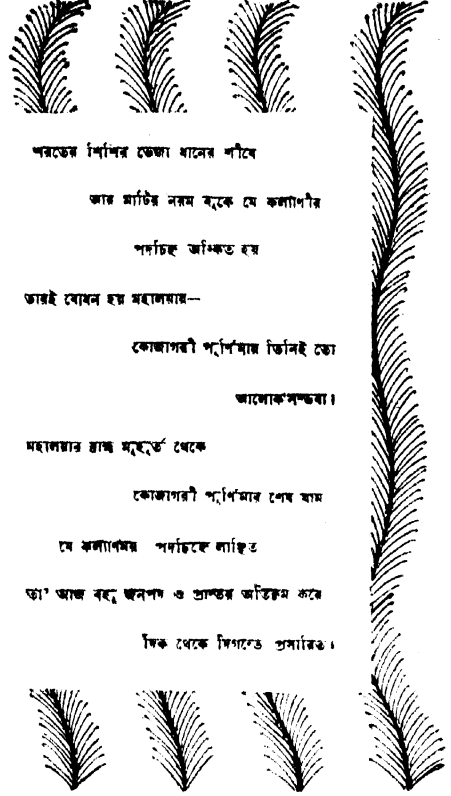 শরতের শিশির ভেজা ধানের শীষে
আর মাটির নরম বুকে যে কল্যাণীর
পদচিহ্ন অঙ্কিত হয়
তারই বোধন হয় মহালয়ায়—
কোজাগরী পূর্ণিমায় তিনিই তো
আলোকসম্ভবা।
মহালয়ার ব্রাহ্ম মুহূর্ত থেকে
কোজাগরী পূর্ণিমার শেষ যাম
যে কল্যাণময় পদচিহ্নে লাঞ্ছিত
তা' আজ বহু জনপদ ও প্রান্তর অতিক্রম করে
দিক থেকে দিগন্তে প্রসারিত।